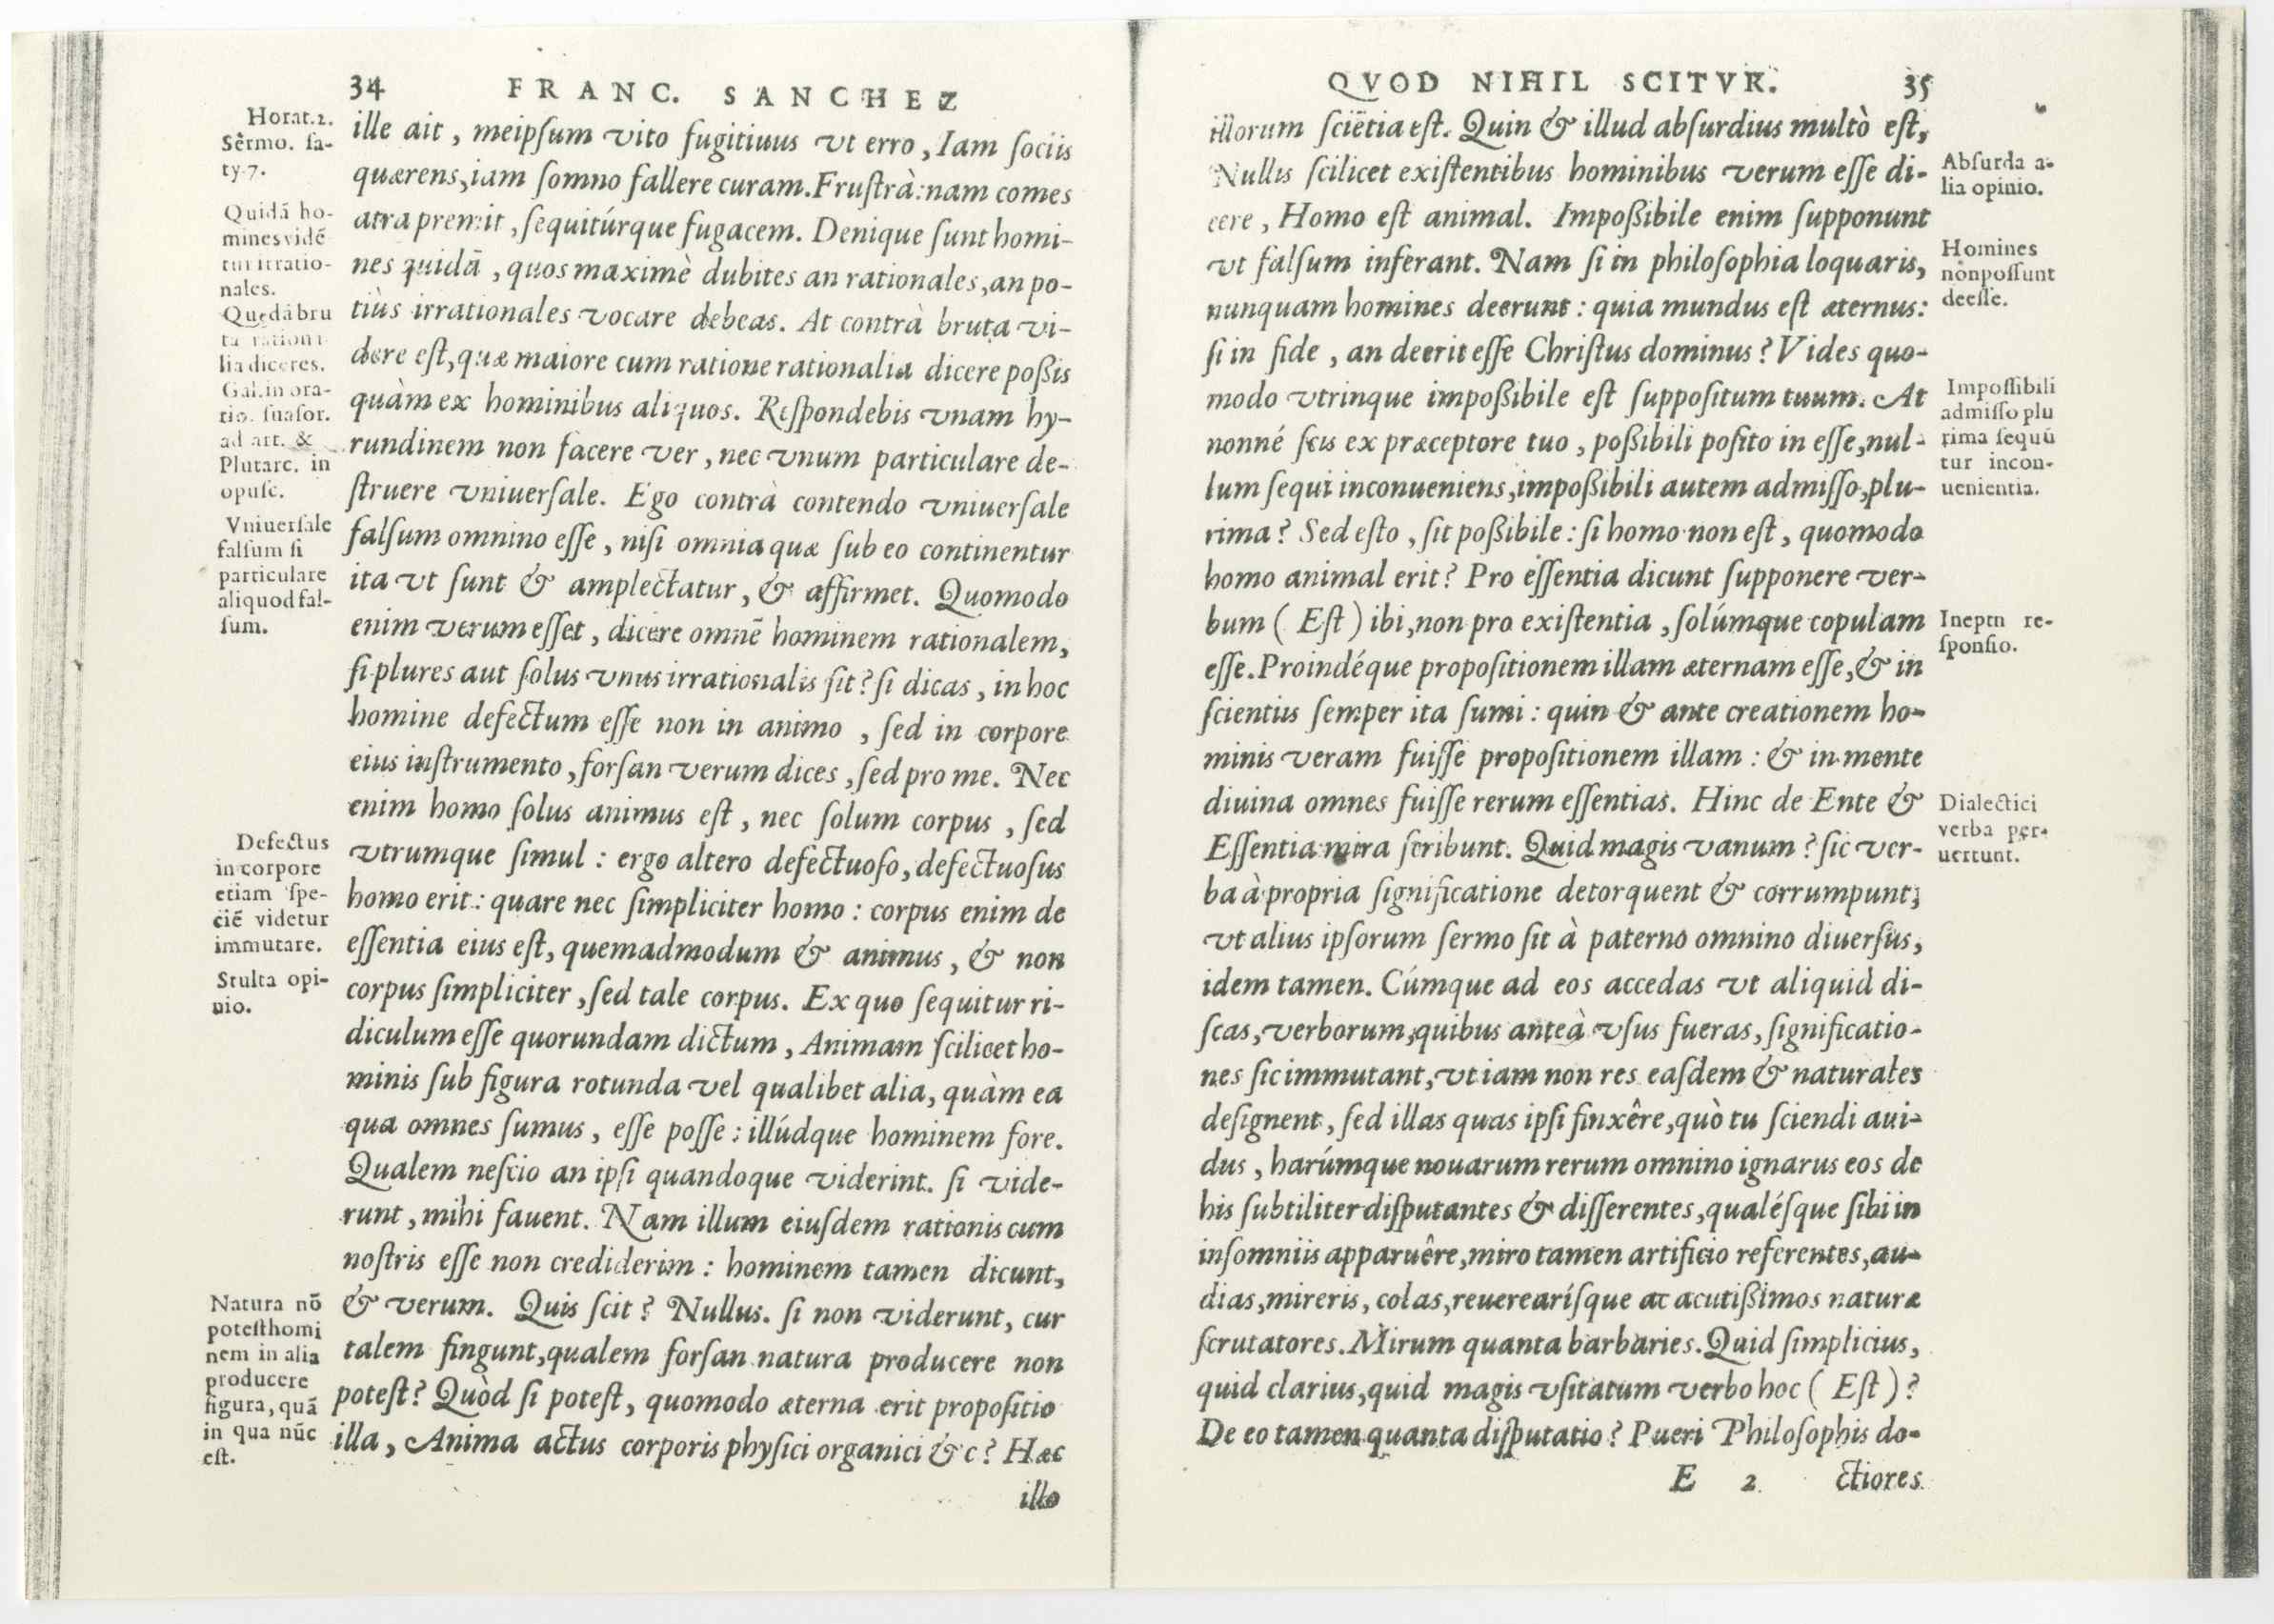 34 FRANC. SANCHEZ
Horat.2.
Sermo. sa-
ty.7.
Quidā ho-
mines vidē
tur irratio-
nales.
Quędā bru
ta rationa
lia diceres.
Gal.in ora-
tio. suasor.
ad art. &
Plutarc. in
opusc.
Vniuersale
falsum si
particulare
aliquod fal-
sum.
Defectus
in corpore
etiam spe-
ciē videtur
immutare.
Stulta opi-
nio.
Natura nō
potest homi
nem in alia
producere
figura, quā
in qua nūc
est.
ille ait, meipsum vito fugitiuus vt erro, Iam sociis
quærens, iam somno fallere curam. Frustrà: nam comes
atra premit, sequitúrque fugacem. Denique sunt homi-
nes quidā, quos maximè dubites an rationales, an po-
tiùs irrationales vocare debeas. At contrà bruta vi-
dere est, quæ maiore cum ratione rationalia dicere poßis
quàm ex hominibus aliquos. Respondebis vnam hy-
rundinem non facere ver, nec vnum particulare de-
struere vniuersale. Ego contrà contendo vniuersale
falsum omnino esse, nisi omnia quæ sub eo continentur
ita vt sunt & amplectatur, & affirmet. Quomodo
enim verum esset, dicere omnē hominem rationalem,
si plures aut solus vnus irrationalis sit? si dicas, in hoc
homine defectum esse non in animo, sed in corpore
eius instrumento, forsan verum dices, sed pro me. Nec
enim homo solus animus est, nec solum corpus, sed
vtrumque simul: ergo altero defectuoso, defectuosus
homo erit: quare nec simpliciter homo: corpus enim de
essentia eius est, quemadmodum & animus, & non
corpus simpliciter, sed tale corpus. Ex quo sequitur ri-
diculum esse quorundam dictum, Animam scilicet ho-
minis sub figura rotunda vel qualibet alia, quàm ea
qua omnes sumus, esse posse: illúdque hominem fore.
Qualem nescio an ipsi quandoque viderint. si vide-
runt, mihi fauent. Nam illum eiusdem rationis cum
nostris esse non crediderim: hominem tamen dicunt,
& verum. Quis scit? Nullus. si non viderunt, cur
talem fingunt, qualem forsan natura producere non
potest? Quòd si potest, quomodo æterna erit propositio
illa, Anima actus corporis physici organici &c? Hæc
illo
QVOD NIHIL SCITVR. 35
illorum sciētia est. Quin & illud absurdius multò est,
Nullis scilicet existentibus hominibus verum esse di-
cere, Homo est animal. Impoßibile enim supponunt
vt falsum inferant. Nam si in philosophia loquaris,
nunquam homines deerunt: quia mundus est æternus:
si in fide, an deerit esse Christus dominus? Vides quo-
modo vtrinque impoßibile est suppositum tuum. At
nonné scis ex præceptore tuo, poßibili posito in esse, nul-
lum sequi inconueniens, impoßibili autem admisso, plu-
rima? Sed esto, sit poßibile: si homo non est, quomodo
homo animal erit? Pro essentia dicunt supponere ver-
bum (Est) ibi, non pro existentia, solúmque copulam
esse. Proindéque propositionem illam æternam esse, & in
scientiis semper ita sumi: quin & ante creationem ho-
minis veram fuisse propositionem illam: & in mente
diuina omnes fuisse rerum essentias. Hinc de Ente &
Essentia mira scribunt. Quid magis vanum? sic ver-
ba à propria significatione detorquent & corrumpunt;
vt alius ipsorum sermo sit à paterno omnino diuersus,
idem tamen. Cúmque ad eos accedas vt aliquid di-
scas, verborum, quibus anteà vsus fueras, significatio-
nes sic immutant, vt iam non res easdem & naturales
designent, sed illas quas ipsi finxêre, quò tu sciendi aui-
dus, harúmque nouarum rerum omnino ignarus eos de
his subtiliter disputantes & disserentes, qualésque sibi in
insomniis apparuêre, miro tamen artificio referentes, au-
dias, mireris, colas, reuerearísque ac acutißimos naturæ
scrutatores. Mirum quanta barbaries. Quid simplicius,
quid clarius, quid magis vsitatum verbo hoc (Est)?
De eo tamen quanta disputatio? Pueri Philosophis do-
E 2 ctiores
Absurda a-
lia opinio.
Homines
nō possunt
deesse.
Impossibili
admisso plu
rima sequū
tur incon-
uenientia.
Inepta re-
sponsio.
Dialectici
verba per-
uertunt.